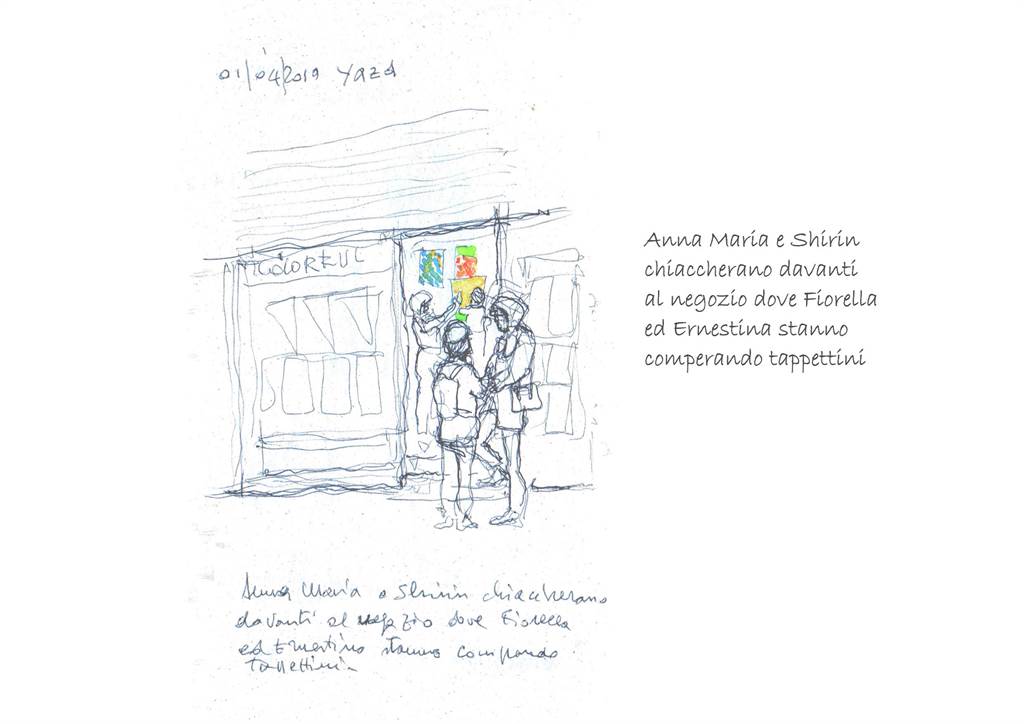 01/04/2019 Yazd
Anna Maria e Shirin
chiaccherano davanti
al negozio dove Fiorella
ed Ernestina stanno
comperando tappettini
Anna Maria e Shirin chiaccherano
davanti al negozio dove Fiorella
ed Ernestina stanno comperando
tappettini